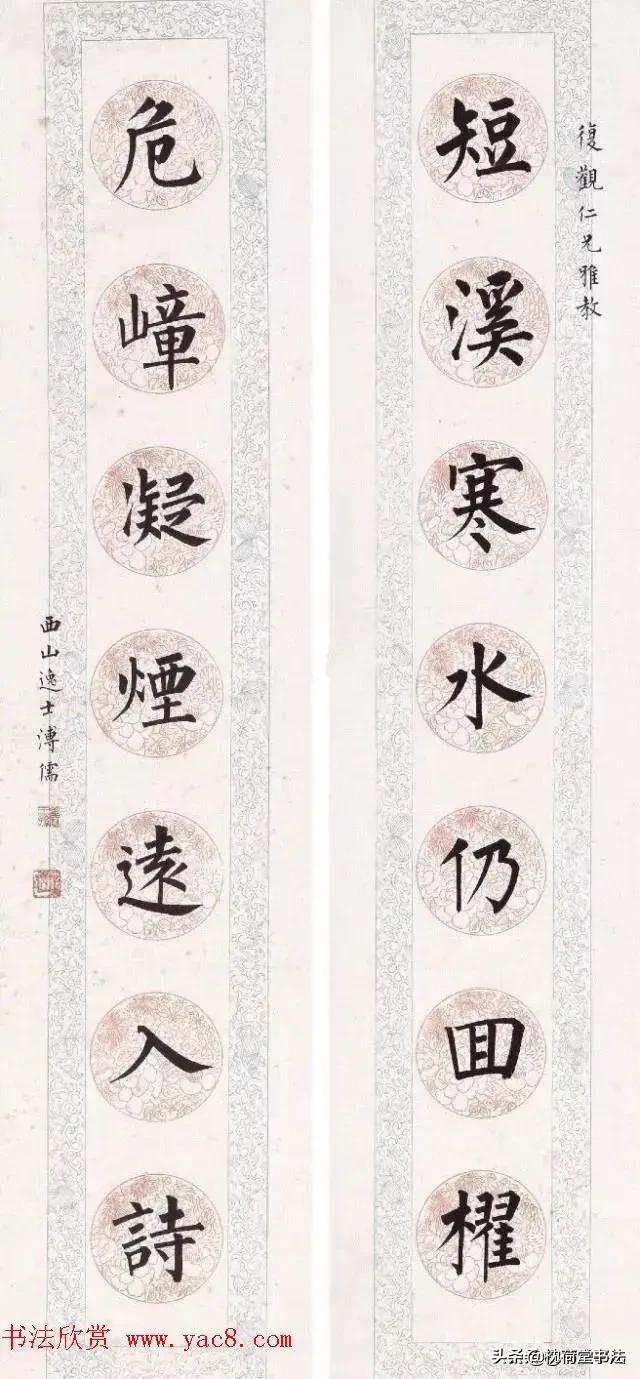 復觀仁兄雅教
短溪寒水仍囬櫂
危嶂凝煙遠入詩
西山逸士溥儒
书法欣赏 www.yac8.com
头条@枕荷堂书法